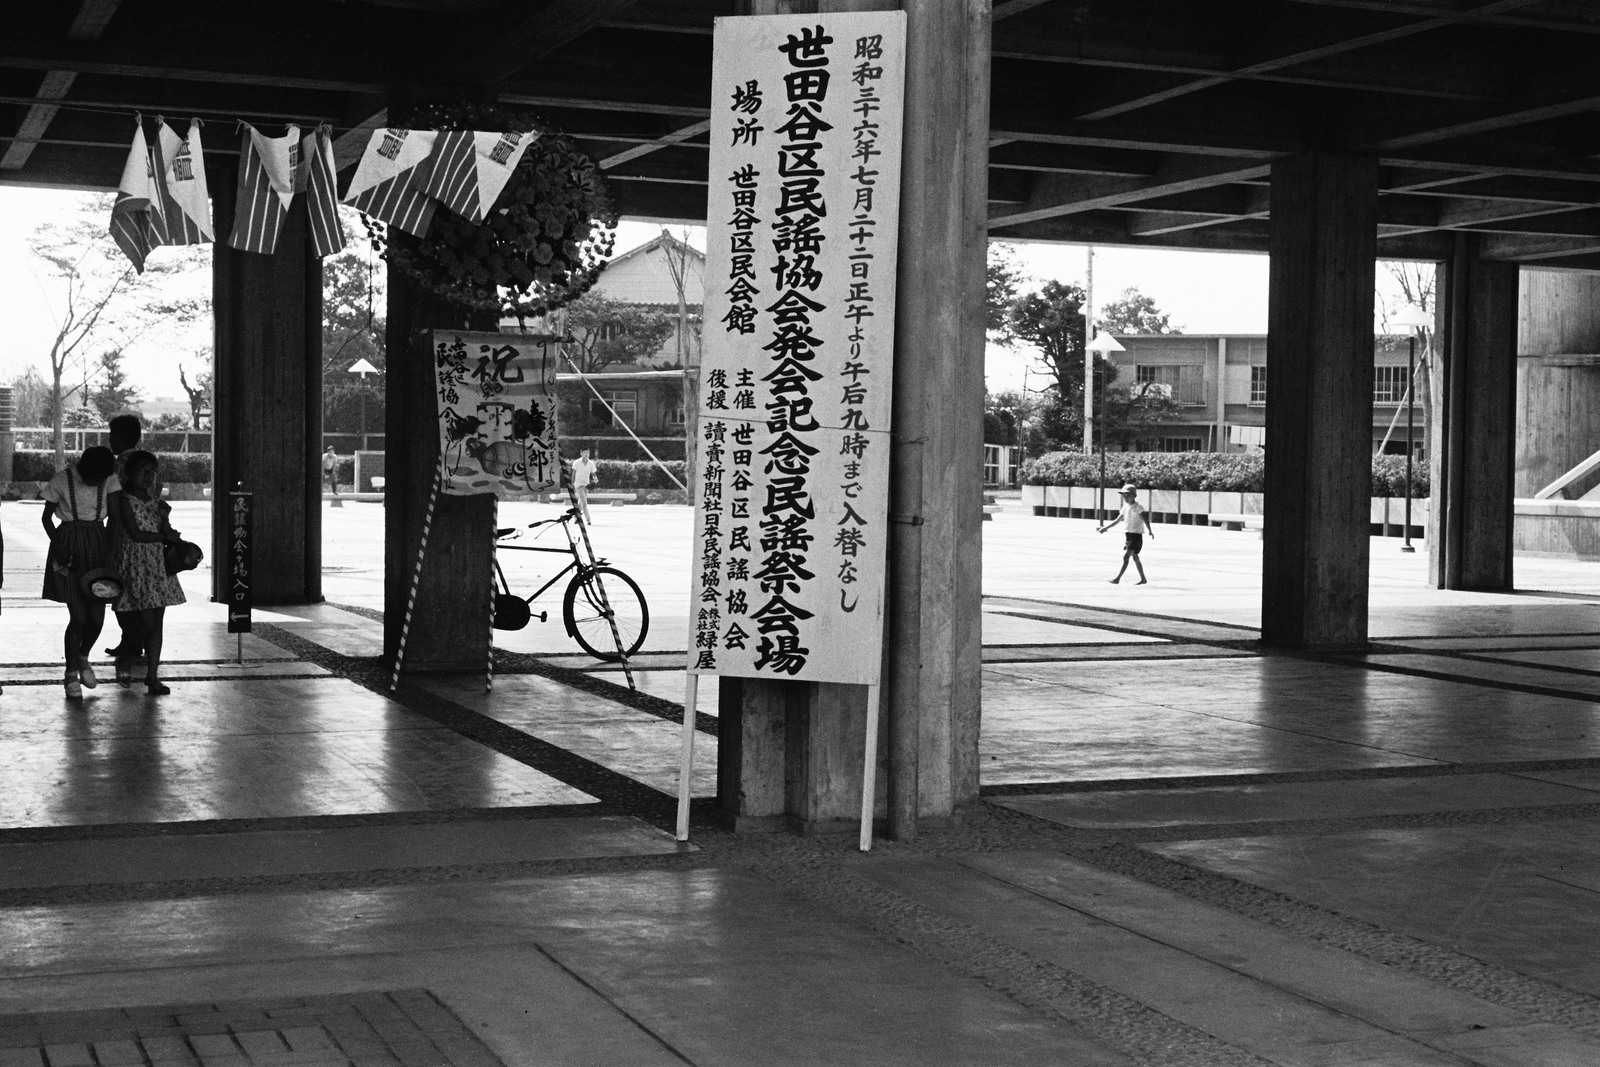 昭和三十六年七月二十二日正午より午后九時まで入替なし
世田谷区民謡協会発会記念民謡祭会場
場所 世田谷区民会館
主催 世田谷区民謡協会
後援 讀賣新聞社.日本民謡協会.株式会社緑屋
祝
世田谷区
民謡協会
民謡協会々場入口